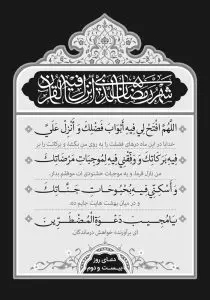 شهر رمضان الذی انزل فیه القرآن
اَللّهُمَّ افْتَحْ لی فیهِ اَبْوابَ فَضْلِكَ وَ اَنْزِلْ عَلَیَّ
خدایا در این ماه درهای فضلت را به روی من بگشا و برکاتت را بر
فیهِ بَرَكاتِكَ وَ وَفِّقْنی فیهِ لِمُوجِباتِ مَرْضاتِكَ
من نازل فرما، و به موجبات خشنودی ات موفقم بدار
وَ اَسْكِنّی فیهِ بُحْبُوحاتِ جَنّاتِكَ
و در میان بهشت هایت جایم ده،
یا مُجیبَ دَعْوَةِ الْمُضْطَرّینَ
ای برآورنده خواهش درماندگان.
دعـای روز
بیست و دوم